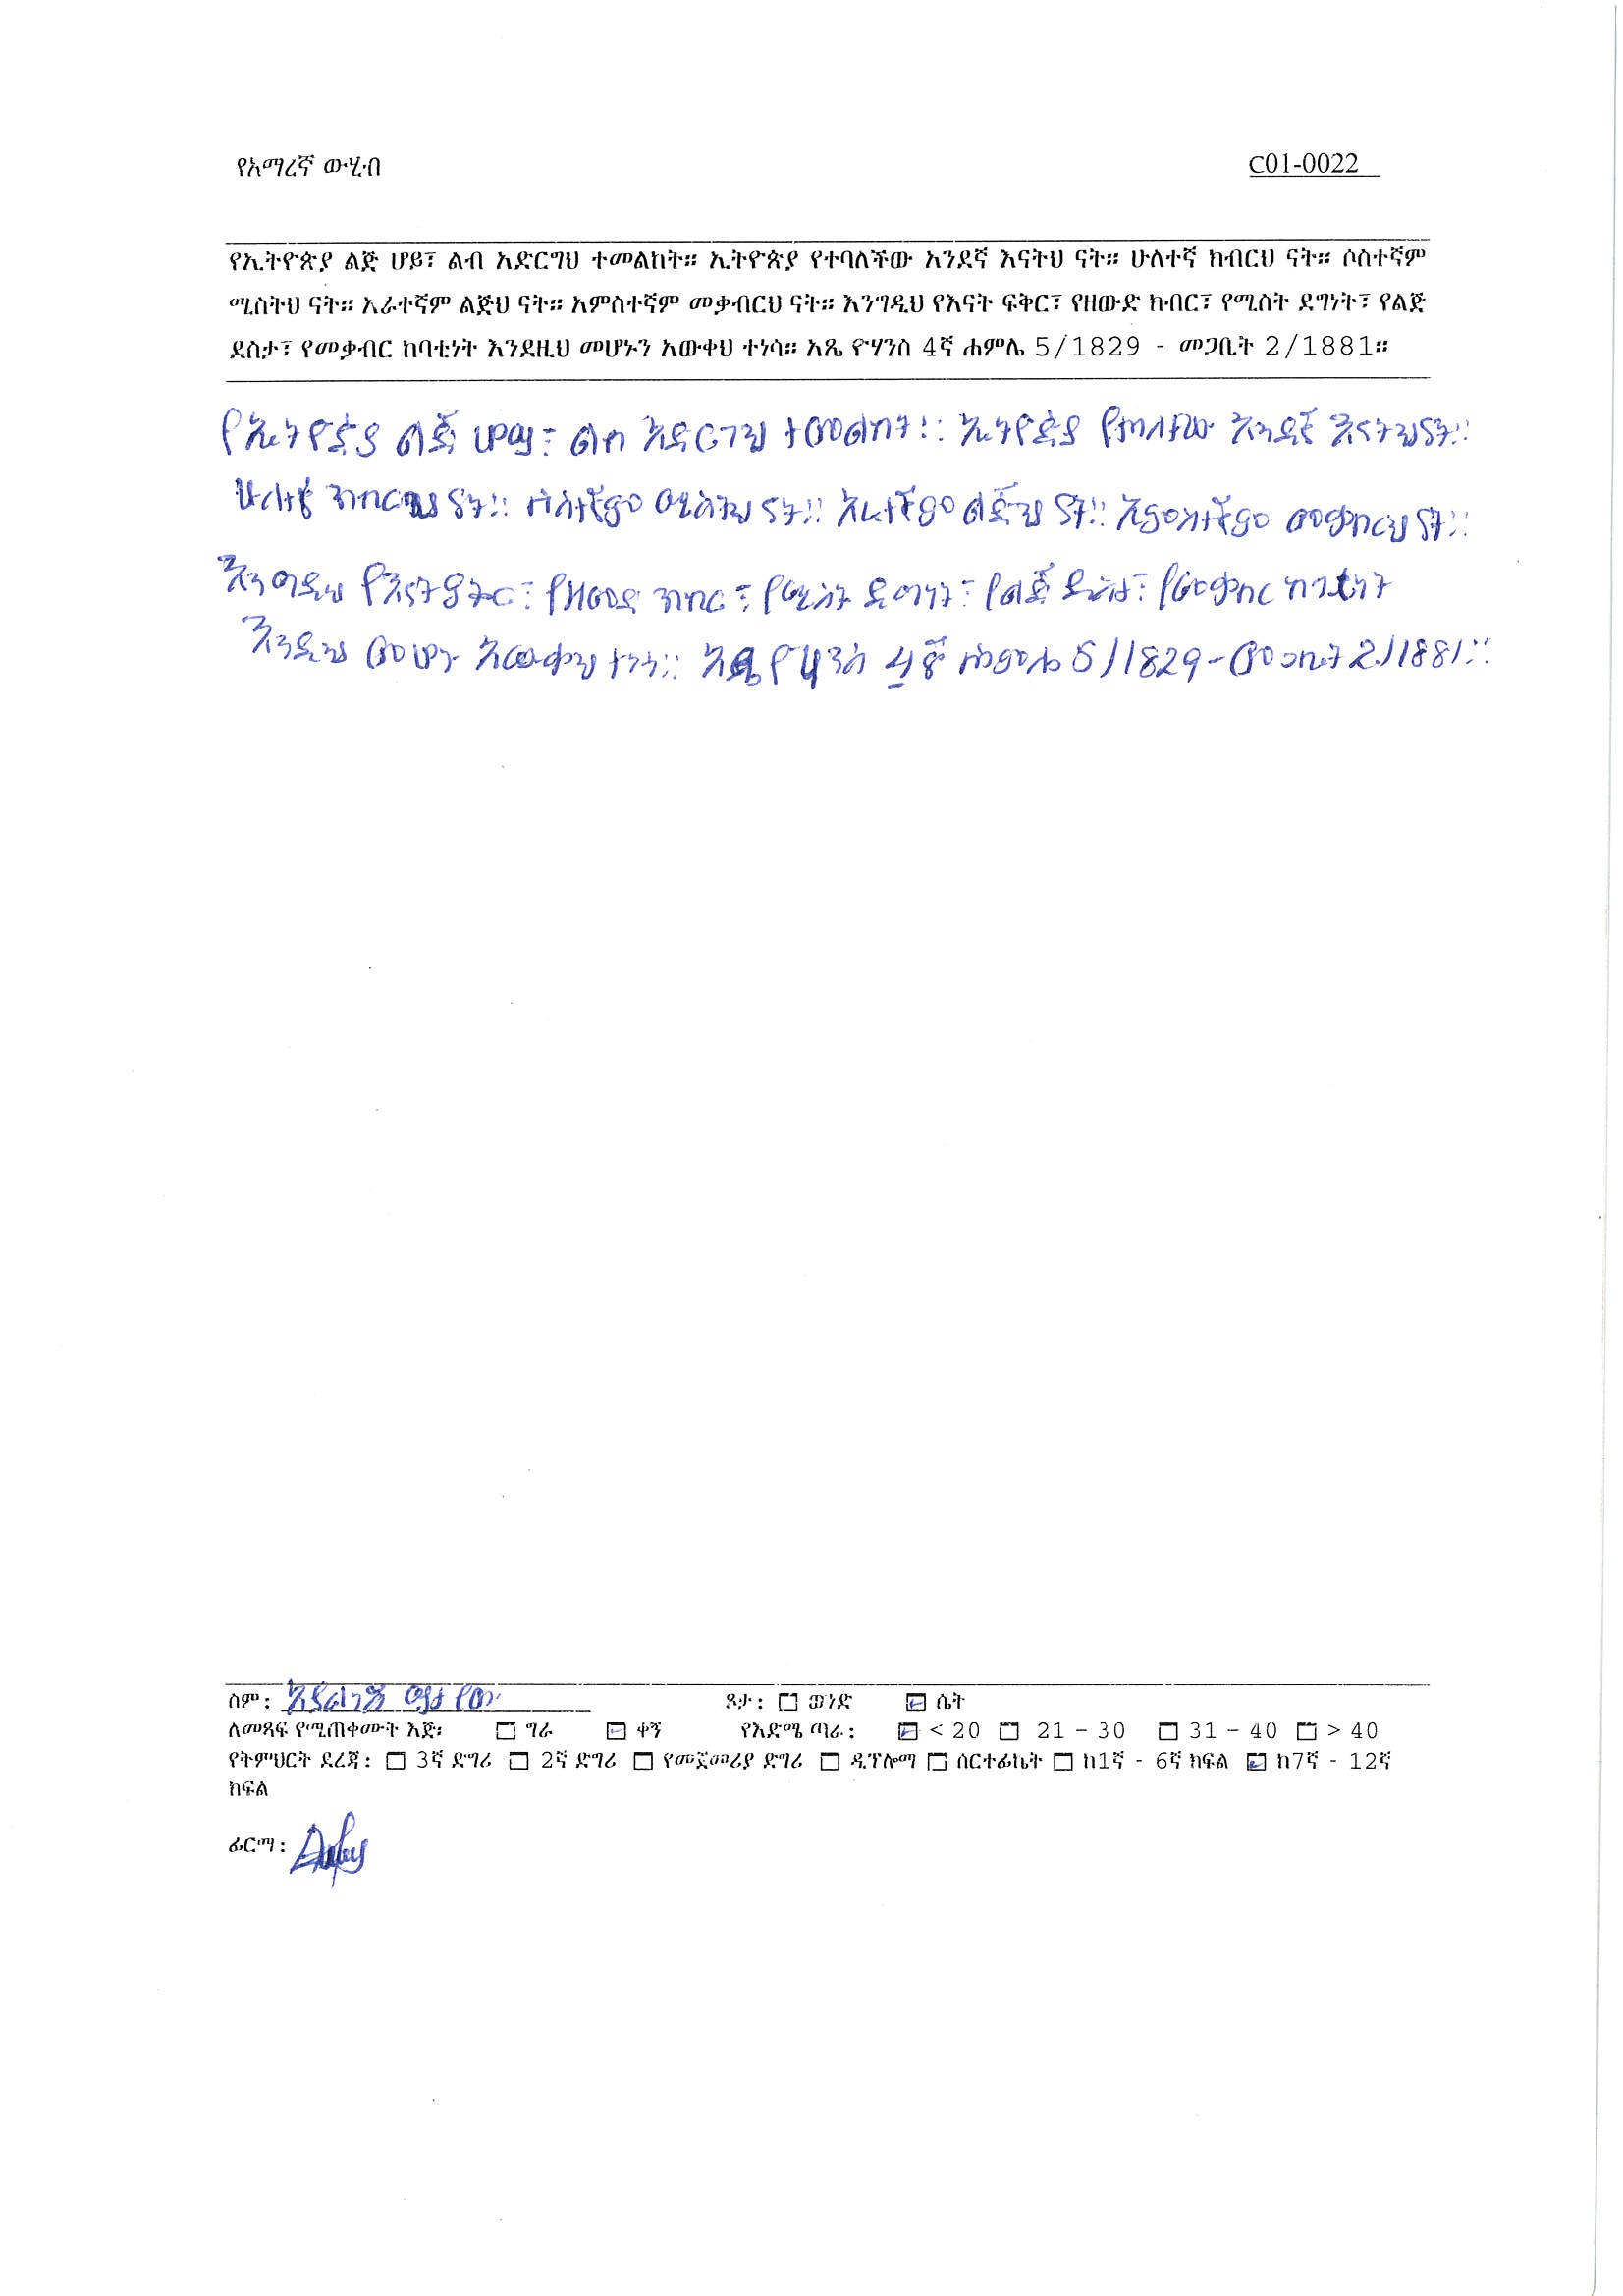 የአማረኛ ውሂብ C01-0022
የኢትዮጵያ ልጅ ሆይ፣ ልብ አድርግህ ተመልከት። ኢትዮጵያ የተባለችው አንደኛ እናትህ ናት። ሁለተኛ ክብርህ ናት። ሶስተኛም
ሚስትህ ናት። አራተኛም ልጅህ ናት። አምስተኛም መቃብርህ ናት። እንግዲህ የእናት ፍቅር፣ የዘውድ ክብር፣ የሚስት ደግነት፣ የልጅ
ደስታ፣ የመቃብር ከባቲነት እንደዚህ መሆኑን አውቀህ ተነሳ። አጼ ዮሃንስ 4ኛ ሐምሌ 5/1829 - መጋቢት 2/1881።
የኢትዮጵያ ልጅ ሆይ፣ ልብ አድርገህ ተመልከት። ኢትዮጵያ የተባለችው አንደኛ እናትህ ናት።
ሁለተኛ ክብርህ ናት። ሶስተኛም ሚስትህ ናት። አራተኛም ልጅህ ናት። አምስተኛም መቃብርህ ናት።
እንግዲህ የእናት ፍቅር፣ የዘውድ ክብር፣ የሚስት ደግነት፣ የልጅ ደስታ፣ የመቃብር ከባቲነት
እንዲህ መሆኑ አውቀህ ተነሳ። አጼ ዮሃንስ 4ኛ ሐምሌ 5/1829 - መጋቢት 2/1881።
ስም: ጾታ: ወንድ ሴት
ለመጻፍ የሚጠቀሙት እጅ፡ ግራ ቀኝ የእድሜ ጣራ: < 20 21 - 30 31 - 40 > 40
የትምህርት ደረጃ: 3ኛ ድግሪ 2ኛ ድግሪ የመጀመሪያ ድግሪ ዲፕሎማ ሰርተፊኬት ከ1ኛ - 6ኛ ክፍል ከ7ኛ - 12ኛ
ክፍል
ፊርማ: